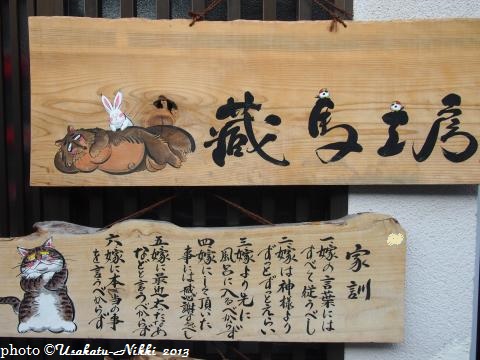 蔵馬工房
家訓
一、嫁の言葉には
すべて従うべし
二、嫁は神様より
ずっとずっとえらい
三、嫁より先に
風呂に入るべからず
四、嫁にして頂いた
事には感謝を返し
五、嫁に最近太ったなあ
などと言うべからず
六、嫁に本当の事
を言うべからず
photo ©Usakatu-Nikki 2013